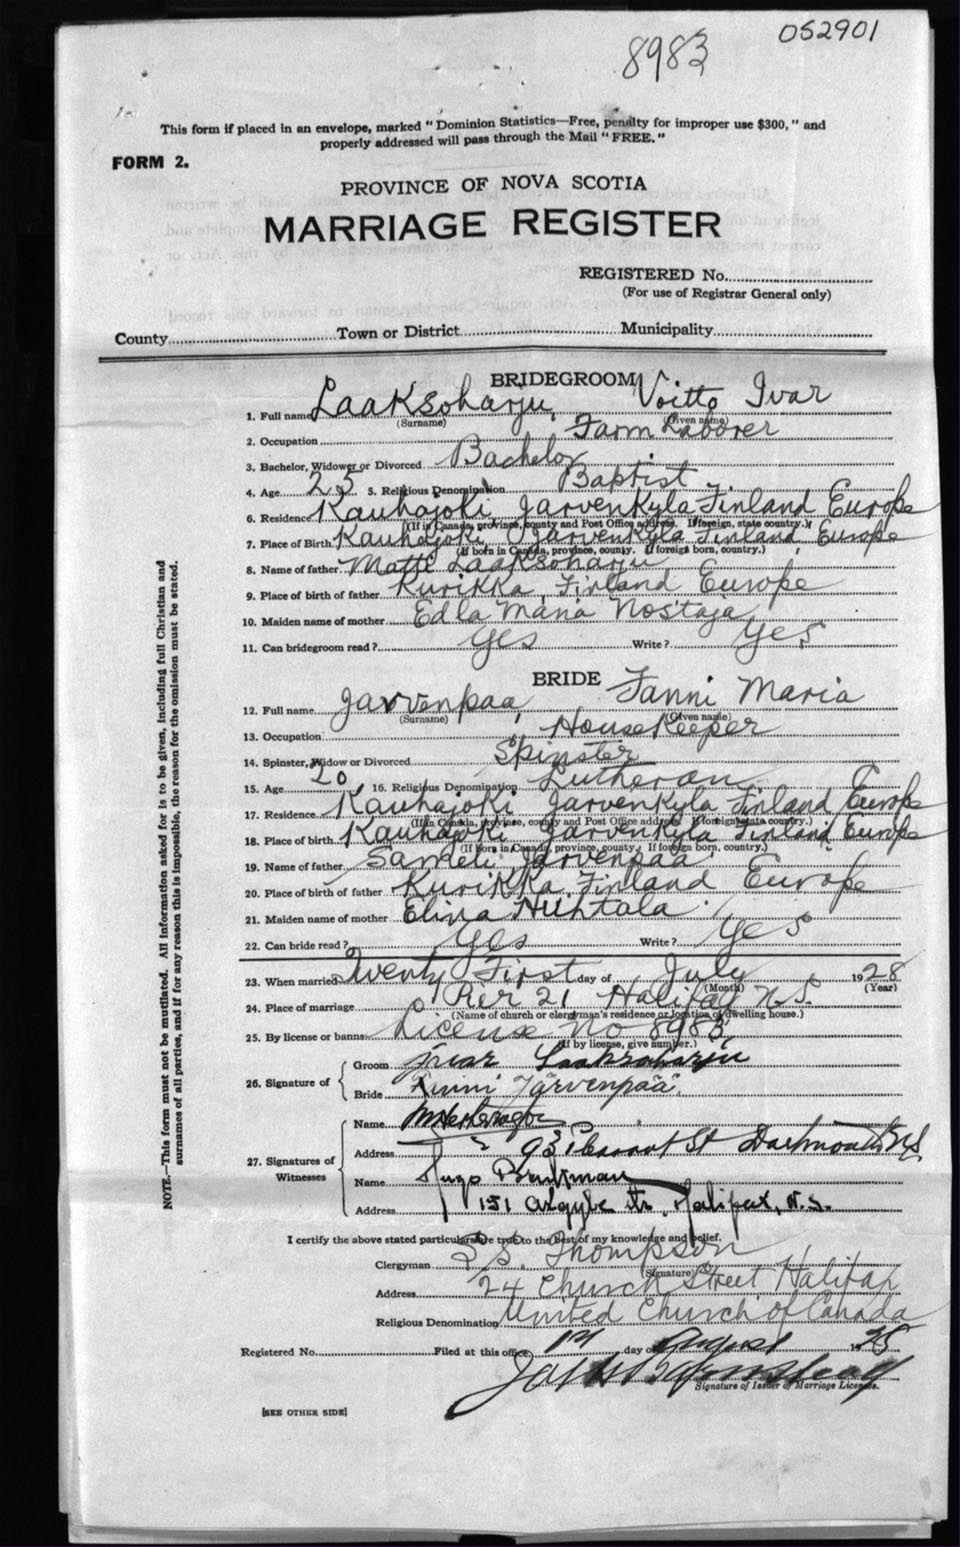 052901
8983
This form if placed in an envelope, marked "Dominion Statistics—Free, penalty for improper use $300," and
properly addressed will pass through the Mail "FREE."
FORM 2.
PROVINCE OF NOVA SCOTIA
MARRIAGE REGISTER
REGISTERED No.
(For use of Registrar General only)
County Town or District Municipality
BRIDEGROOM
1. Full name Laaksoharju, Voitto Ivar
(Surname) (Given name)
2. Occupation Farm Laborer
3. Bachelor, Widower or Divorced Bachelor
4. Age 25 5. Religious Denomination Baptist
6. Residence Kauhajoki Jarvenkyla Finland Europe
(If in Canada, province, county and Post Office address. If foreign, state country.)
7. Place of Birth Kauhajoki Jarvenkyla Finland Europe
(If born in Canada, province, county. If foreign born, country.)
8. Name of father Matti Laaksoharju
9. Place of birth of father Kurikka, Finland Europe
10. Maiden name of mother Edla Maria Nostaja
11. Can bridegroom read? Yes Write? Yes
BRIDE
12. Full name Jarvenpaa, Fanni Maria
(Surname) (Given name)
13. Occupation Housekeeper
14. Spinster, Widow or Divorced Spinster
15. Age 20 16. Religious Denomination Lutheran
17. Residence Kauhajoki Jarvenkyla Finland Europe
(If in Canada, province, county and Post Office address. If foreign, state country.)
18. Place of birth Kauhajoki Jarvenkyla Finland Europe
(If born in Canada, province, county. If foreign born, country.)
19. Name of father Sameli Jarvenpaa
20. Place of birth of father Kurikka, Finland Europe
21. Maiden name of mother Elina Huhtala
22. Can bride read? Yes Write? Yes
23. When married Twenty First day of July 1928
(Month) (Year)
24. Place of marriage Pier 21 Halifax N.S.
(Name of church or clergyman's residence or location of dwelling house.)
25. By license or banns License No 8983
(If by license, give number.)
26. Signature of
Groom Laaksoharju
Bride Järvenpää
27. Signatures of
Witnesses
Name
Address 93 Pleasant St Dartmouth N.S.
Name Hugo
Address 151 Argyle St., Halifax, N.S.
I certify the above stated particulars are true to the best of my knowledge and belief.
Clergyman S.S. Thompson
(Signature)
Address 24 Church Street Halifax
Religious Denomination United Church of Canada
Registered No. Filed at this office 1st day of August 1928
Signature of Issuer of Marriage Licenses.
[SEE OTHER SIDE]
NOTE.—This form must not be mutilated. All information asked for is to be given, including full Christian and
surnames of all parties, and if for any reason this is impossible, the reason for the omission must be stated.